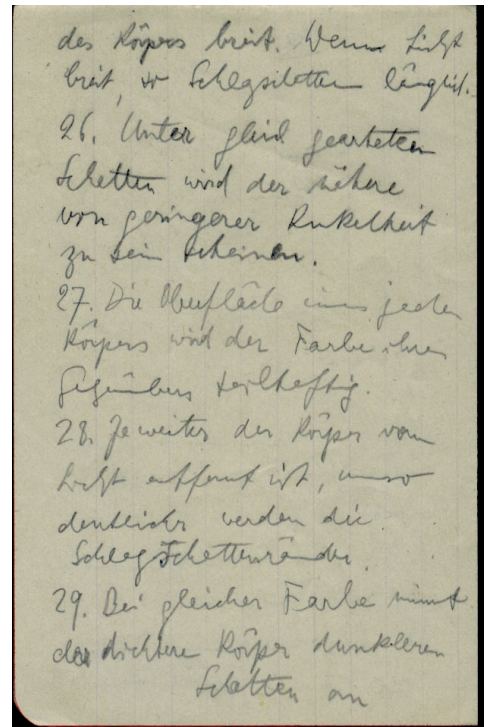 des Körpers breit. Wenn Licht
breit, so Schlagschatten länglich.
26. Unter gleich gearteten
Schatten wird der nähere
von geringerer Dunkelheit
zu sein scheinen.
27. Die Oberfläche eines jeden
Körpers wird der Farbe ihres
Gegenübers teilhaftig.
28. Je weiter der Körper vom
Licht entfernt ist, umso
deutlicher werden die
Schlagschattenränder.
29. Bei gleicher Farbe nimmt
der dichtere Körper dunkleren
Schatten an